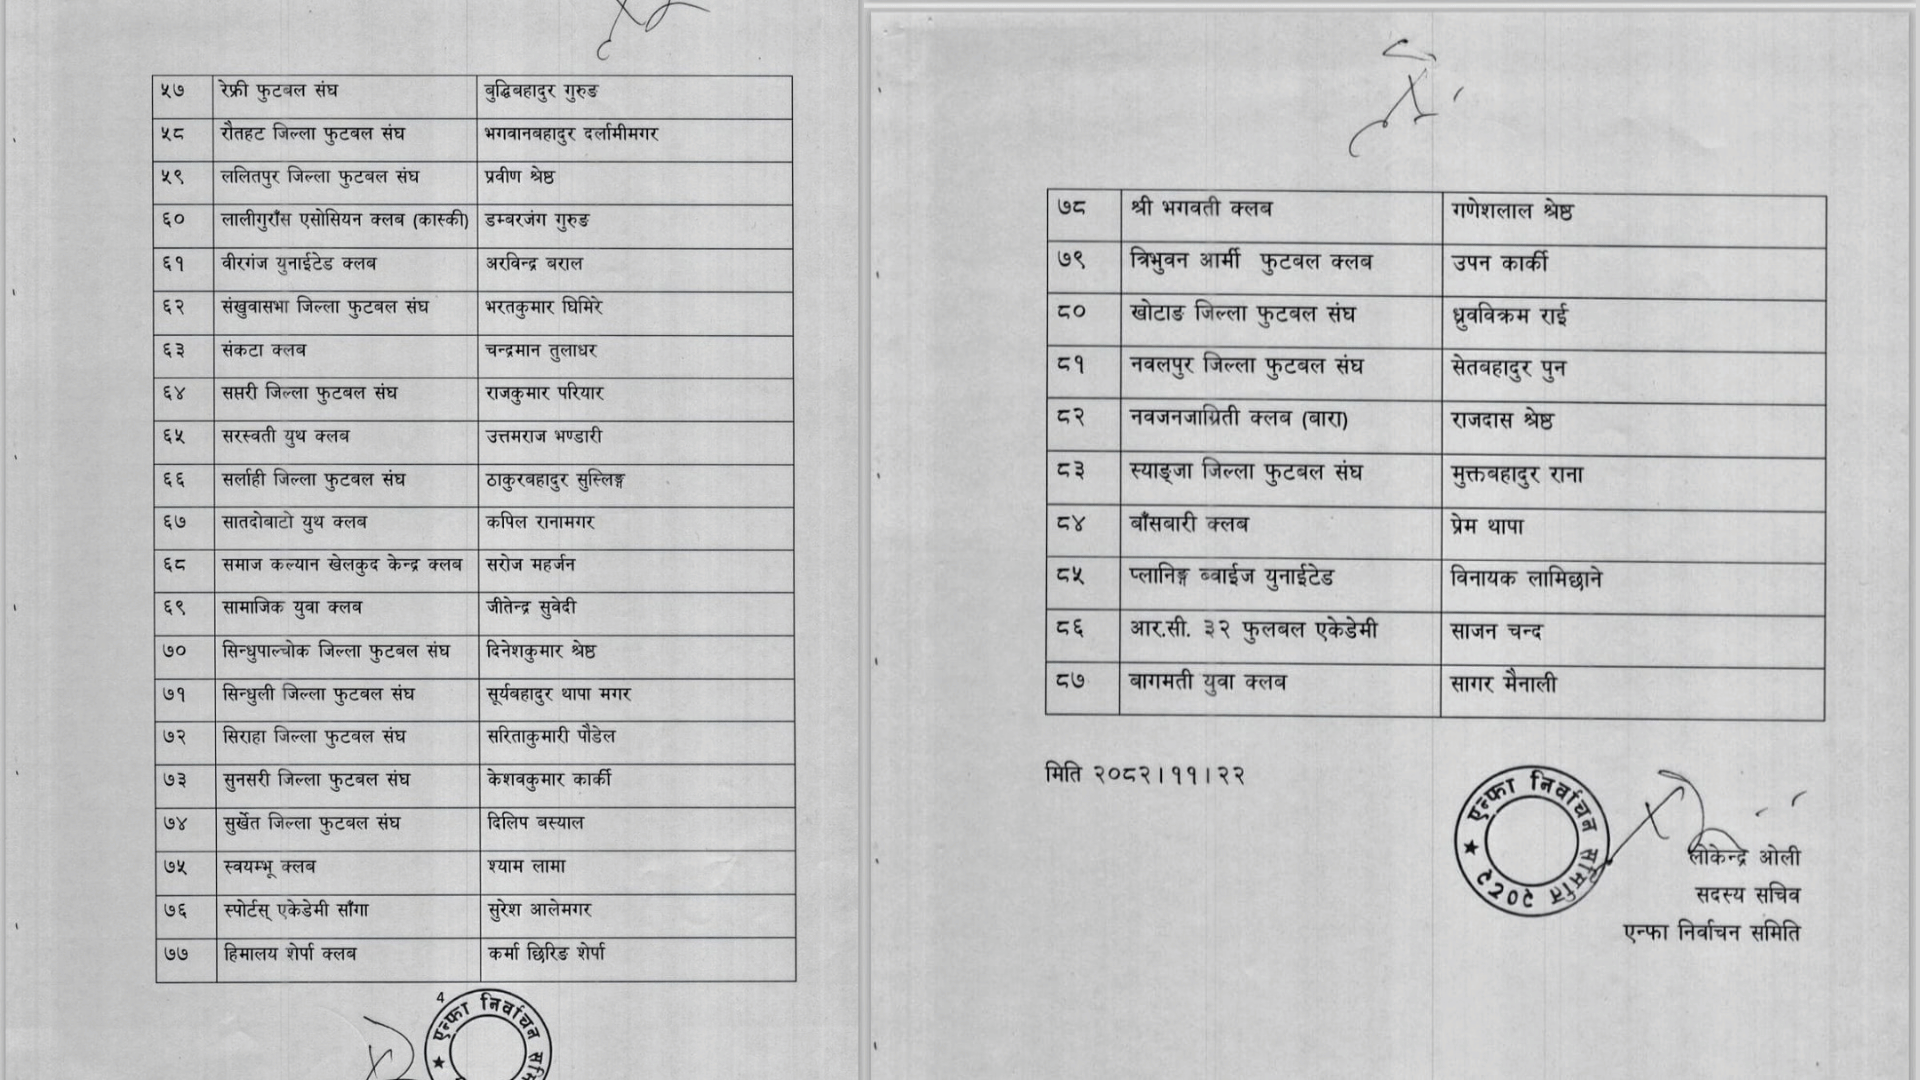 ५७ रेफ्री फुटबल संघ बुद्धिबहादुर गुरुङ
५८ रौतहट जिल्ला फुटबल संघ भगवानबहादुर दर्लामीमगर
५९ ललितपुर जिल्ला फुटबल संघ प्रवीण श्रेष्ठ
६० लालीगुराँस एसोसियन क्लब (कास्की) डम्बरजंग गुरुङ
६१ वीरगंज युनाईटेड क्लब अरविन्द्र बराल
६२ संखुवासभा जिल्ला फुटबल संघ भरतकुमार घिमिरे
६३ संकटा क्लब चन्द्रमान तुलाधर
६४ सप्तरी जिल्ला फुटबल संघ राजकुमार परियार
६५ सरस्वती युथ क्लब उत्तमराज भण्डारी
६६ सर्लाही जिल्ला फुटबल संघ ठाकुरबहादुर सुस्लिङ्ग
६७ सातदोबाटो युथ क्लब कपिल रानामगर
६८ समाज कल्यान खेलकुद केन्द्र क्लब सरोज महर्जन
६९ सामाजिक युवा क्लब जीतेन्द्र सुवेदी
७० सिन्धुपाल्चोक जिल्ला फुटबल संघ दिनेशकुमार श्रेष्ठ
७१ सिन्धुली जिल्ला फुटबल संघ सूर्यबहादुर थापा मगर
७२ सिराहा जिल्ला फुटबल संघ सरिताकुमारी पौडेल
७३ सुनसरी जिल्ला फुटबल संघ केशवकुमार कार्की
७४ सुर्खेत जिल्ला फुटबल संघ दिलिप बस्याल
७५ स्वयम्भू क्लब श्याम लामा
७६ स्पोर्टस् एकेडेमी साँगा सुरेश आलेमगर
७७ हिमालय शेर्पा क्लब कर्मा छिरिङ शेर्पा
4
एन्फा निर्वाचन
७८ श्री भगवती क्लब गणेशलाल श्रेष्ठ
७९ त्रिभुवन आर्मी फुटबल क्लब उपन कार्की
८० खोटाङ जिल्ला फुटबल संघ ध्रुवविक्रम राई
८१ नवलपुर जिल्ला फुटबल संघ सेतबहादुर पुन
८२ नवजनजाग्रिती क्लब (बारा) राजदास श्रेष्ठ
८३ स्याङ्जा जिल्ला फुटबल संघ मुक्तबहादुर राना
८४ बाँसबारी क्लब प्रेम थापा
८५ प्लानिङ्ग ब्वाईज युनाईटेड विनायक लामिछाने
८६ आर.सी. ३२ फुलबल एकेडेमी साजन चन्द
८७ बागमती युवा क्लब सागर मैनाली
मिति २०८२।११।२२
एन्फा निर्वाचन समिति २०८२
लोकेन्द्र ओली
सदस्य सचिव
एन्फा निर्वाचन समिति